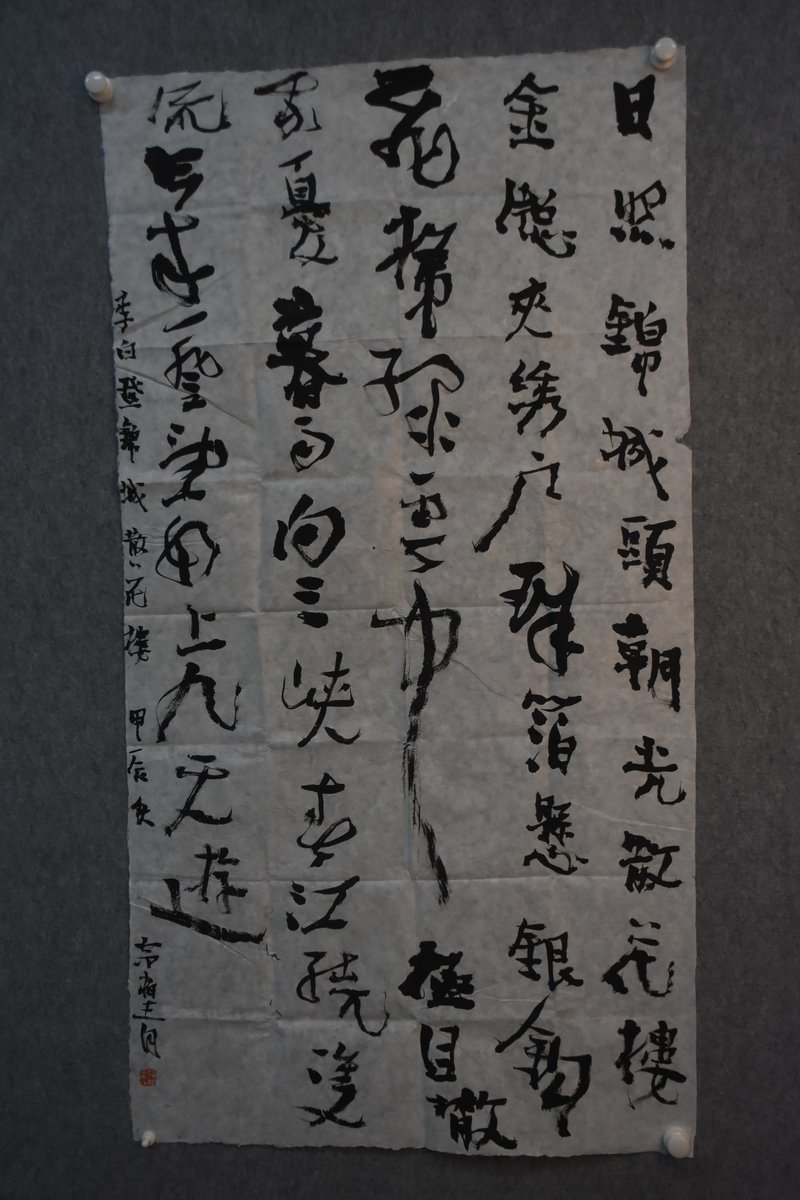 日照錦城頭朝光散花樓
金牕夾绣户珠箔懸銀鈎
飛梯绿雲中極目散
我憂暮雨向三峽春江繞雙
流今来一登望如上九天遊
李白登錦城散花樓 甲辰